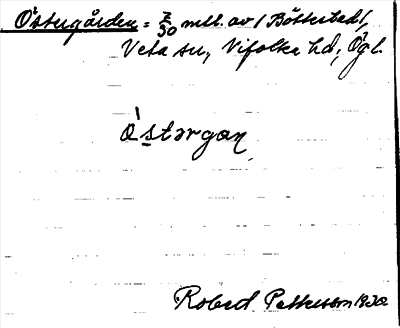 Östergården = 7/50 mtl. av (Bötterstad),
Veta sn, Vifolka hd, Ögl.
östərgαn
Robert Pettersson 1930